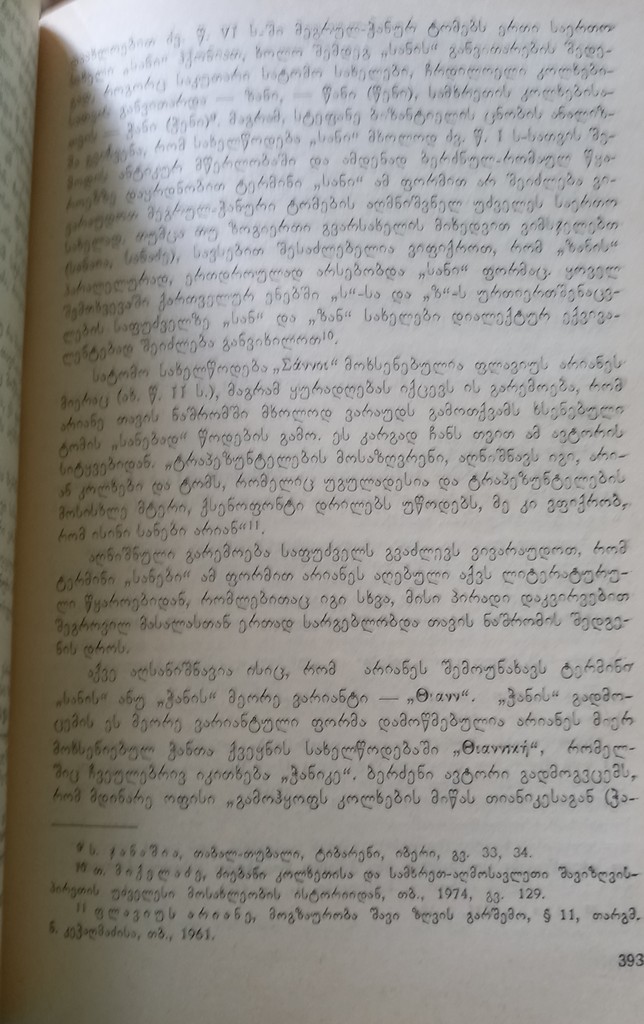 დაახლოებით ძვ. წ. VI ს-ში მეგრულ-ჭანურ ტომებს ერთი საერთო
სახელი „სანი“ ჰქონიათ, ხოლო შემდეგ „სანის“ განვითარების შედე-
გად, როგორც საკუთარი სატომო სახელები, ჩრდილოელი კოლხები-
სათვის განვითარდა — ზანი, — წანი (წენი), სამხრეთის კოლხებისა-
თვის — ჭანი (ჭენი)⁹. მაგრამ, სტეფანე ბიზანტიელის ცნობის ანალიზ-
მა გვიჩვენა, რომ სახელწოდება „სანი“ მხოლოდ ძვ. წ. I ს-სათვის შე-
მოდის ანტიკურ მწერლობაში და ამდენად ბერძნულ-რომაულ წყა-
როებზე დაყრდნობით ტერმინი „სანი“ ამ ფორმით არ შეიძლება ვი-
ვარაუდოთ მეგრულ-ჭანური ტომების აღმნიშვნელ უძველეს საერთო
სახელად, თუმცა თუ ზოგიერთი გვარსახელის მიხედვით ვიმსჯელებთ
(სანაია, სანაძე), სავსებით შესაძლებელია ვიფიქროთ, რომ „ზანის“
პარალელურად, ერთდროულად არსებობდა „სანი“ ფორმაც. ყოველ
შემთხვევაში ქართველურ ენებში „ს“-სა და „ზ“-ს ურთიერთშენაცვ-
ლების საფუძველზე „სან“ და „ზან“ სახელები დიალექტურ ექვივა-
ლენტებად შეიძლება განვიხილოთ¹⁰.
სატომო სახელწოდება „Σάννοι“ მოხსენებულია ფლავიუს არიანეს
მიერაც (ახ. წ. II ს.), მაგრამ ყურადღებას იქცევს ის გარემოება, რომ
არიანე თავის ნაშრომში მხოლოდ ვარაუდს გამოთქვამს ხსენებული
ტომის „სანებად“ წოდების გამო. ეს კარგად ჩანს თვით ამ ავტორის
სიტყვებიდან. „ტრაპეზუნტელების მოსაზღვრენი, აღნიშნავს იგი, არი-
ან კოლხები და ტომს, რომელიც უგულადესია და ტრაპეზუნტელების
მოსისხლე მტერი, ქსენოფონტი დრილებს უწოდებს, მე კი ვფიქრობ,
რომ ისინი სანები არიან“¹¹.
აღნიშნული გარემოება საფუძველს გვაძლევს ვივარაუდოთ, რომ
ტერმინი „სანები“ ამ ფორმით არიანეს აღებული აქვს ლიტერატურუ-
ლი წყაროებიდან, რომლებითაც იგი სხვა, მისი პირადი დაკვირვებით
შეგროვილ მასალასთან ერთად სარგებლობდა თავის ნაშრომის შედგე-
ნის დროს.
აქვე აღსანიშნავია ისიც, რომ არიანეს შემოუნახავს ტერმინი
„სანის“ ანუ „ჭანის“ მეორე ვარიანტი — „Θιανν“. „ჭანის“ გადმო-
ცემის ეს მეორე ვარიანტული ფორმა დამოწმებულია არიანეს მიერ
მოხსენიებულ ჭანთა ქვეყნის სახელწოდებაში „Θιαννική“, რომელ-
შიც ჩვეულებრივ იკითხება „ჭანიკე“. ბერძენი ავტორი გადმოგვცემს,
რომ მდინარე ოფისი „გამოჰყოფს კოლხების მიწას თიანიკესაგან (ჭა-
⁹ ს. ჯანაშია, თაბალ-თუბალი, ტიბარენი, იბერი, გვ. 33, 34.
¹⁰ თ. მიქელაძე, ძიებანი კოლხეთისა და სამხრეთ-აღმოსავლეთი შავიზღვის-
პირეთის უძველესი მოსახლეობის ისტორიიდან, თბ., 1974, გვ. 129.
¹¹ ფლავიუს არიანე, მოგზაურობა შავი ზღვის გარშემო, § 11, თარგმ.
ნ. კეჭაღმაძისა, თბ., 1961.
393